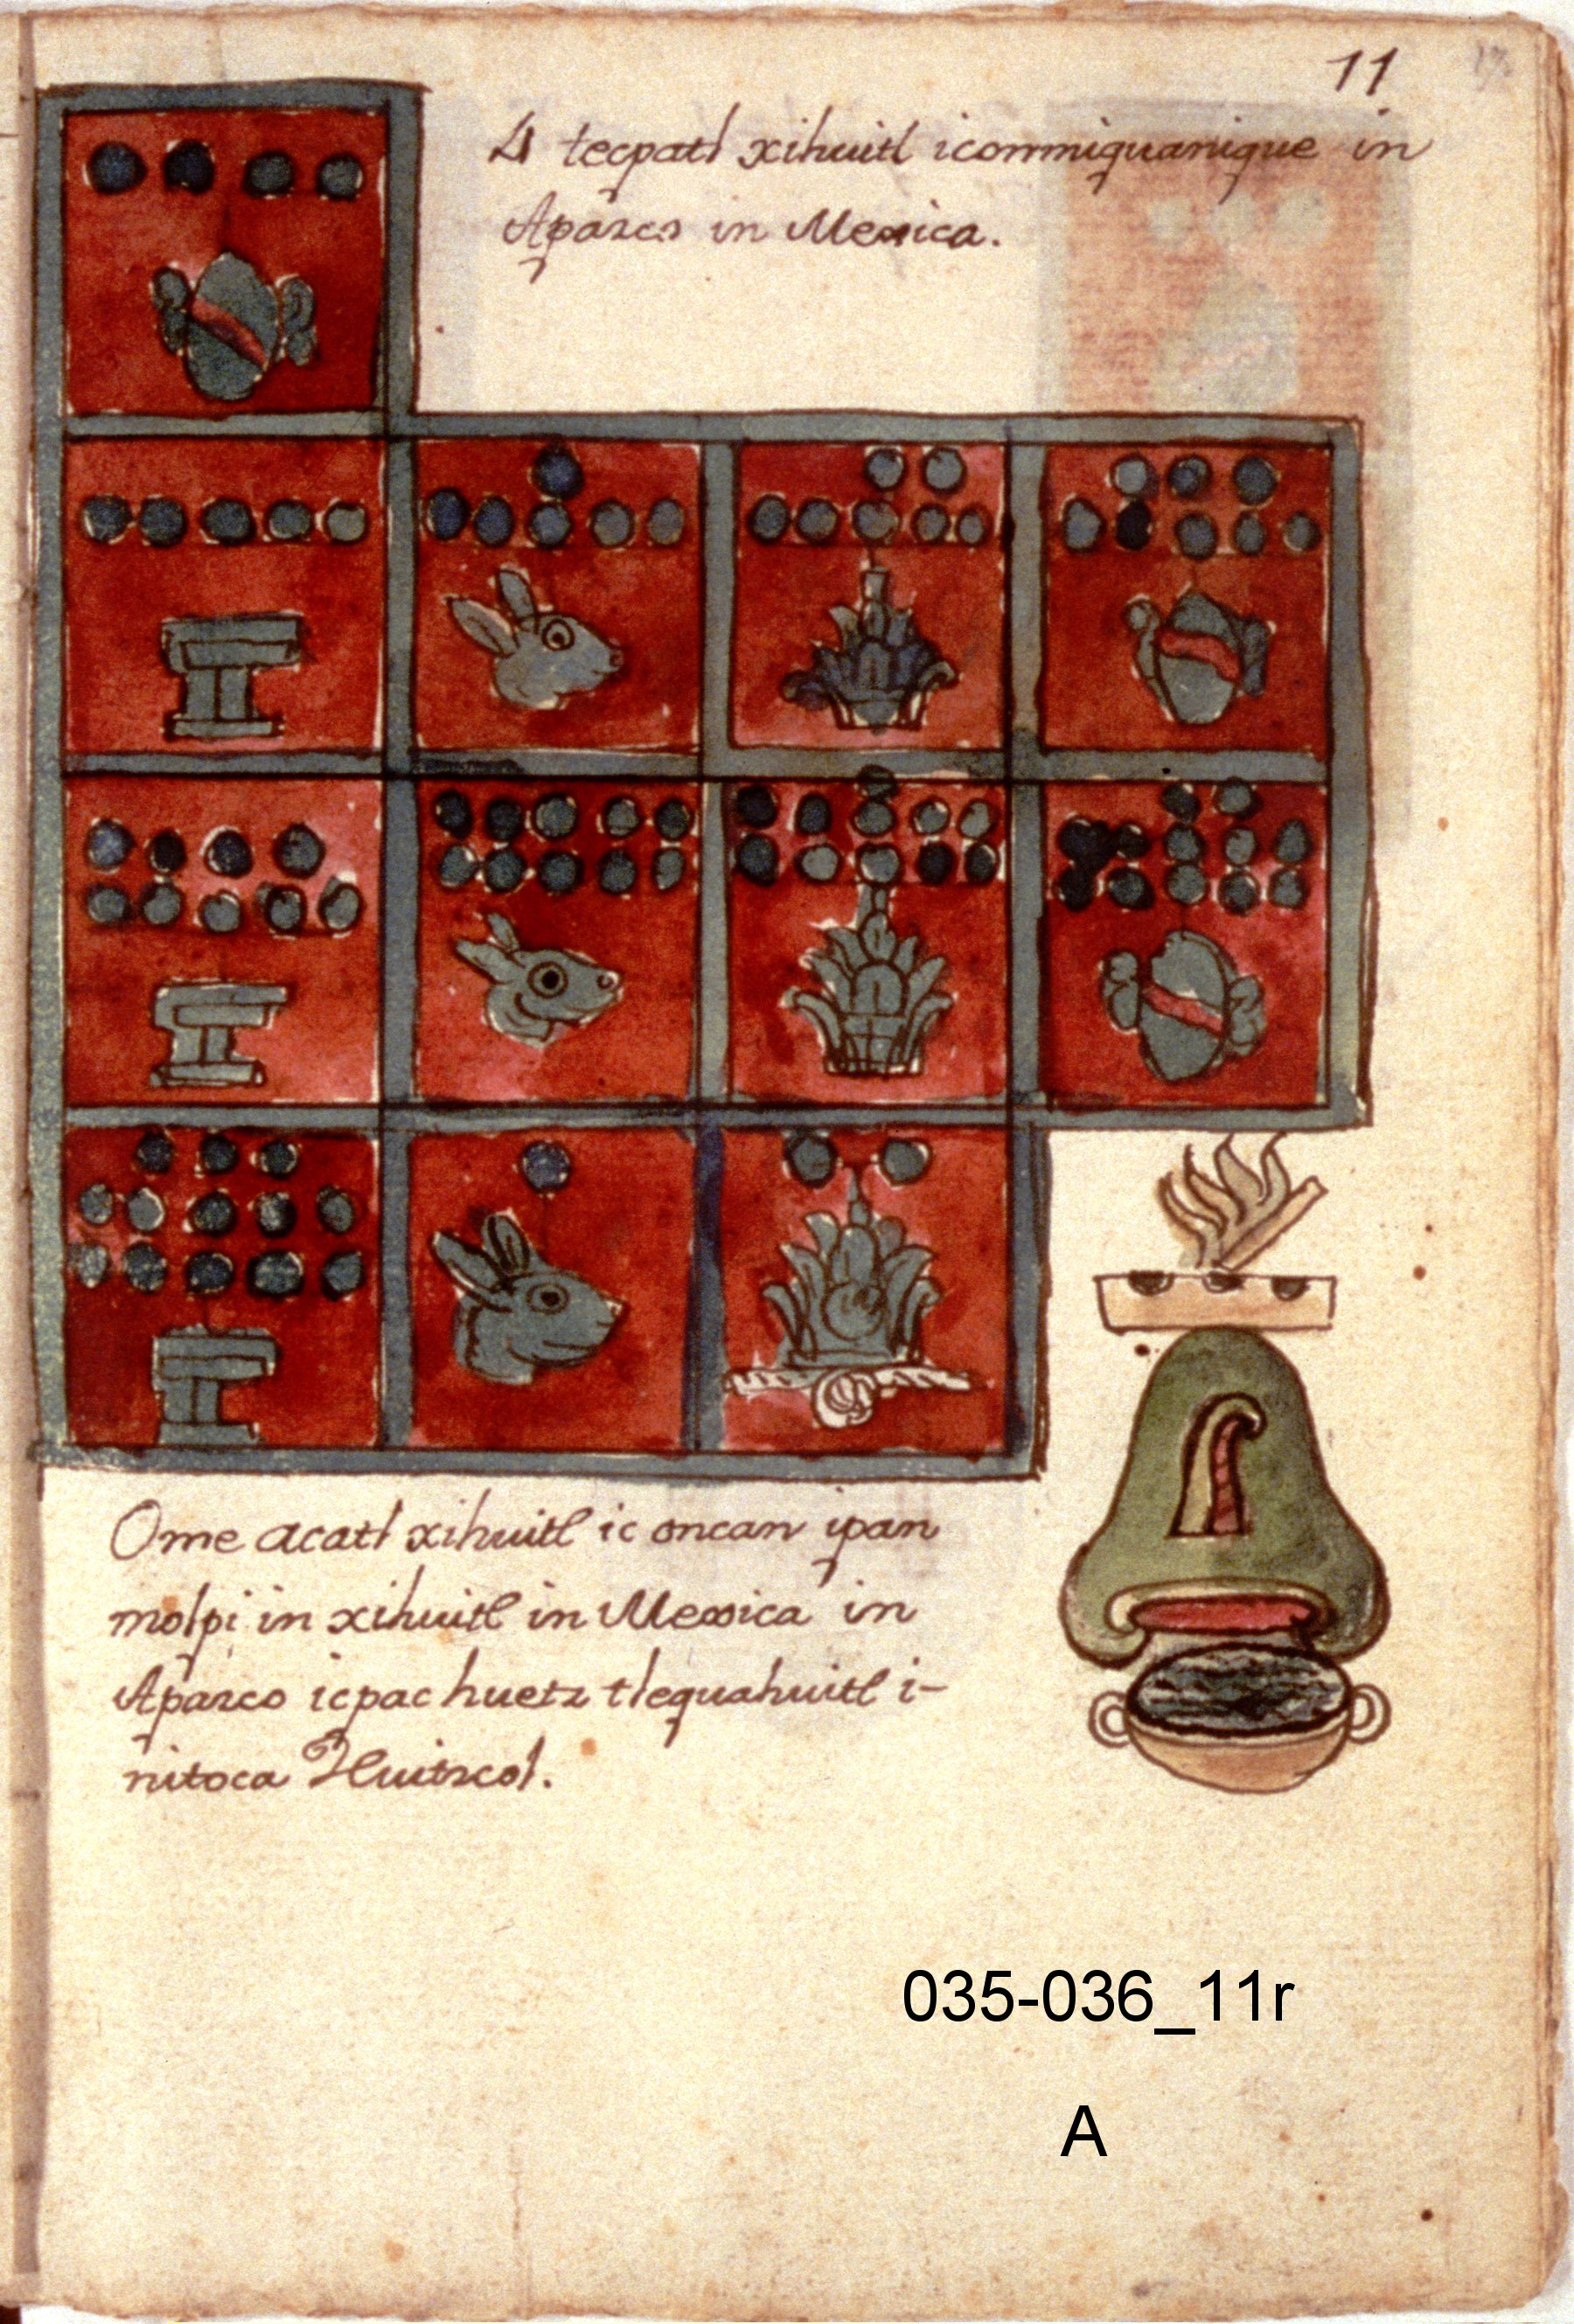 11
4 tecpatl xihuitl iconmiquanique in
Apazco in Mexica.
Ome acatl xihuitl ic oncan ipan
molpi in xihuitl in Mexica in
Apazco icpac huetz tlequahuitl i-
nitoca Huitzcol.
035-036_11r
A